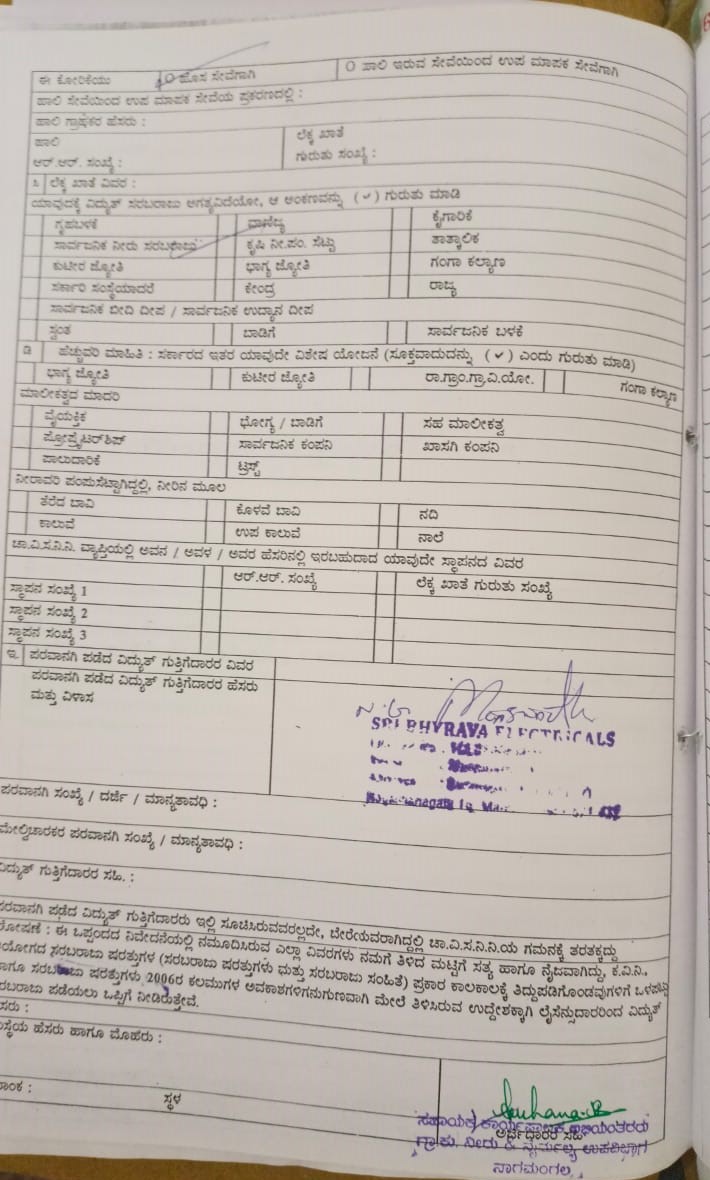 ಈ ಕೋರಿಕೆಯು O ಹೊಸ ಸೇವೆಗಾಗಿ O ಹಾಲಿ ಇರುವ ಸೇವೆಯಿಂದ ಉಪ ಮಾಪಕ ಸೇವೆಗಾಗಿ
ಹಾಲಿ ಸೇವೆಯಿಂದ ಉಪ ಮಾಪಕ ಸೇವೆಯ ಪ್ರಕರಣದಲ್ಲಿ :
ಹಾಲಿ ಗ್ರಾಹಕರ ಹೆಸರು :
ಹಾಲಿ ಲೆಕ್ಕ ಖಾತೆ
ಆರ್.ಆರ್. ಸಂಖ್ಯೆ : ಗುರುತು ಸಂಖ್ಯೆ :
ಲೆಕ್ಕ ಖಾತೆ ವಿವರ :
ಯಾವುದಕ್ಕೆ ವಿದ್ಯುತ್ ಸರಬರಾಜು ಅಗತ್ಯವಿದೆಯೋ, ಆ ಅಂಕಣವನ್ನು (✓) ಗುರುತು ಮಾಡಿ
ಗೃಹಬಳಕೆ ವಾಣಿಜ್ಯ ಕೈಗಾರಿಕೆ
ಸಾರ್ವಜನಿಕ ನೀರು ಸರಬರಾಜು ಕೃಷಿ ನೀ.ಪಂ. ಸೆಟ್ಟು ತಾತ್ಕಾಲಿಕ
ಕುಟೀರ ಜ್ಯೋತಿ ಭಾಗ್ಯ ಜ್ಯೋತಿ ಗಂಗಾ ಕಲ್ಯಾಣ
ಸರ್ಕಾರಿ ಸಂಸ್ಥೆಯಾದರೆ ಕೇಂದ್ರ ರಾಜ್ಯ
ಸಾರ್ವಜನಿಕ ಬೀದಿ ದೀಪ / ಸಾರ್ವಜನಿಕ ಉದ್ಯಾನ ದೀಪ
ಸ್ವಂತ ಬಾಡಿಗೆ ಸಾರ್ವಜನಿಕ ಬಳಕೆ
ಡಿ ಹೆಚ್ಚುವರಿ ಮಾಹಿತಿ : ಸರ್ಕಾರದ ಇತರ ಯಾವುದೇ ವಿಶೇಷ ಯೋಜನೆ (ಸೂಕ್ತವಾದುದನ್ನು (✓) ಎಂದು ಗುರುತು ಮಾಡಿ)
ಭಾಗ್ಯ ಜ್ಯೋತಿ ಕುಟೀರ ಜ್ಯೋತಿ ರಾ.ಗ್ರಾಂ.ಗ್ರಾ.ವಿ.ಯೋ. ಗಂಗಾ ಕಲ್ಯಾಣ
ಮಾಲೀಕತ್ವದ ಮಾದರಿ
ವೈಯಕ್ತಿಕ ಭೋಗ್ಯ / ಬಾಡಿಗೆ ಸಹ ಮಾಲೀಕತ್ವ
ಪ್ರೋಪ್ರೈಟರ್‌ಶಿಪ್ ಸಾರ್ವಜನಿಕ ಕಂಪನಿ ಖಾಸಗಿ ಕಂಪನಿ
ಪಾಲುದಾರಿಕೆ ಟ್ರಸ್ಟ್
ನೀರಾವರಿ ಪಂಪುಸೆಟ್ಟಾಗಿದ್ದಲ್ಲಿ, ನೀರಿನ ಮೂಲ
ತೆರೆದ ಬಾವಿ ಕೊಳವೆ ಬಾವಿ ನದಿ
ಕಾಲುವೆ ಉಪ ಕಾಲುವೆ ನಾಲೆ
ಚಾ.ವಿ.ಸ.ನಿ.ನಿ. ವ್ಯಾಪ್ತಿಯಲ್ಲಿ ಅವನ / ಅವಳ / ಅವರ ಹೆಸರಿನಲ್ಲಿ ಇರಬಹುದಾದ ಯಾವುದೇ ಸ್ಥಾಪನದ ವಿವರ
ಆರ್.ಆರ್. ಸಂಖ್ಯೆ ಲೆಕ್ಕ ಖಾತೆ ಗುರುತು ಸಂಖ್ಯೆ
ಸ್ಥಾಪನ ಸಂಖ್ಯೆ 1
ಸ್ಥಾಪನ ಸಂಖ್ಯೆ 2
ಸ್ಥಾಪನ ಸಂಖ್ಯೆ 3
ಇ. ಪರವಾನಗಿ ಪಡೆದ ವಿದ್ಯುತ್ ಗುತ್ತಿಗೆದಾರರ ವಿವರ
ಪರವಾನಗಿ ಪಡೆದ ವಿದ್ಯುತ್ ಗುತ್ತಿಗೆದಾರರ ಹೆಸರು
ಮತ್ತು ವಿಳಾಸ
SRI BHYRAVA ELECTRICALS
ಪರವಾನಗಿ ಸಂಖ್ಯೆ / ದರ್ಜೆ / ಮಾನ್ಯತಾವಧಿ :
ಮೇಲ್ವಿಚಾರಕರ ಪರವಾನಗಿ ಸಂಖ್ಯೆ / ಮಾನ್ಯತಾವಧಿ :
ವಿದ್ಯುತ್ ಗುತ್ತಿಗೆದಾರರ ಸಹಿ. :
ಪರವಾನಗಿ ಪಡೆದ ವಿದ್ಯುತ್ ಗುತ್ತಿಗೆದಾರರು ಇಲ್ಲಿ ಸೂಚಿಸಿರುವವರಲ್ಲದೇ, ಬೇರೆಯವರಾಗಿದ್ದಲ್ಲಿ ಚಾ.ವಿ.ಸ.ನಿ.ನಿ.ಯ ಗಮನಕ್ಕೆ ತರತಕ್ಕದ್ದು
ಘೋಷಣೆ : ಈ ಒಪ್ಪಂದದ ನಿವೇದನೆಯಲ್ಲಿ ನಮೂದಿಸಿರುವ ಎಲ್ಲಾ ವಿವರಗಳು ನಮಗೆ ತಿಳಿದ ಮಟ್ಟಿಗೆ ಸತ್ಯ ಹಾಗೂ ನೈಜವಾಗಿದ್ದು, ಕ.ವಿ.ನಿ.,
ಯೋಗದ ಸರಬರಾಜು ಷರತ್ತುಗಳ (ಸರಬರಾಜು ಷರತ್ತುಗಳು ಮತ್ತು ಸರಬರಾಜು ಸಂಹಿತೆ) ಪ್ರಕಾರ ಕಾಲಕಾಲಕ್ಕೆ ತಿದ್ದುಪಡಿಗೊಂಡವುಗಳಿಗೆ ಒಳಪಟ್ಟು
ಹಾಗೂ ಸರಬರಾಜು ಷರತ್ತುಗಳು 2006ರ ಕಲಮುಗಳ ಅವಕಾಶಗಳಿಗನುಗುಣವಾಗಿ ಮೇಲೆ ತಿಳಿಸಿರುವ ಉದ್ದೇಶಕ್ಕಾಗಿ ಲೈಸೆನ್ಸುದಾರರಿಂದ ವಿದ್ಯುತ್
ಸರಬರಾಜು ಪಡೆಯಲು ಒಪ್ಪಿಗೆ ನೀಡಿರುತ್ತೇವೆ.
ಹೆಸರು :
ಸಂಸ್ಥೆಯ ಹೆಸರು ಹಾಗೂ ಮೊಹರು :
ದಿನಾಂಕ : ಸ್ಥಳ
ಅರ್ಜಿದಾರರ ಸಹಿ
ಸಹಾಯಕ ಕಾರ್ಯಪಾಲಕ ಅಭಿಯಂತರರು
ಗ್ರಾ.ಕು. ನೀರು & ನೈರ್ಮಲ್ಯ ಉಪವಿಭಾಗ
ನಾಗಮಂಗಲ